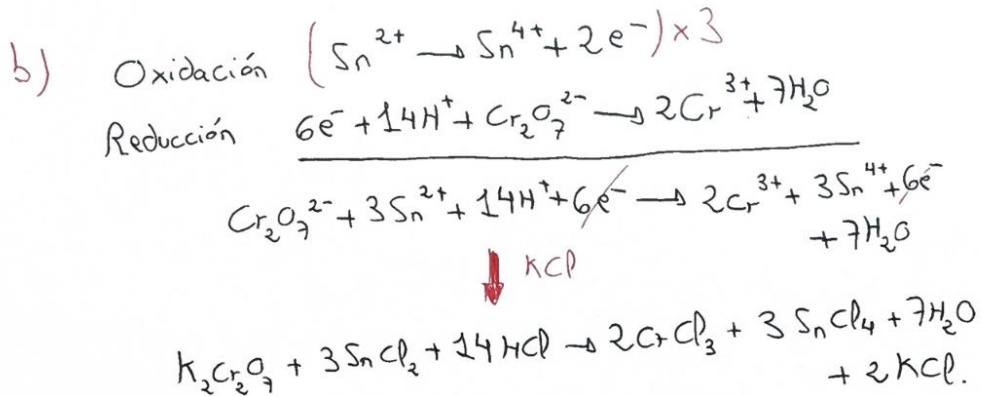 b) Oxidación (Sn²⁺ → Sn⁴⁺ + 2e⁻) × 3
Reducción 6e⁻ + 14H⁺ + Cr₂O₇²⁻ → 2Cr³⁺ + 7H₂O
Cr₂O₇²⁻ + 3Sn²⁺ + 14H⁺ + 6e⁻ → 2Cr³⁺ + 3Sn⁴⁺ + 6e⁻
+ 7H₂O
KCl
K₂Cr₂O₇ + 3SnCl₂ + 14HCl → 2CrCl₃ + 3SnCl₄ + 7H₂O
+ 2KCl.